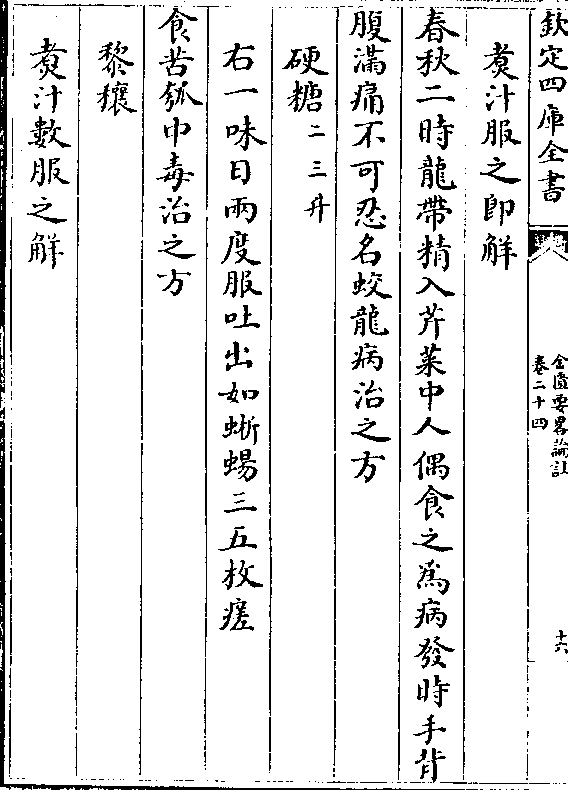 欽定四庫全書
金匱要畧論註
卷二十四
十六
煑汁服之即解
春秋二時龍帶精入芹菜中人偶食之為病發時手背
腹滿痛不可忍名蛟龍病治之方
硬糖二三升
右一味日兩度服吐出如蜥蜴三五枚瘥
食苦瓠中毒治之方
黎穰
煑汁數服之解